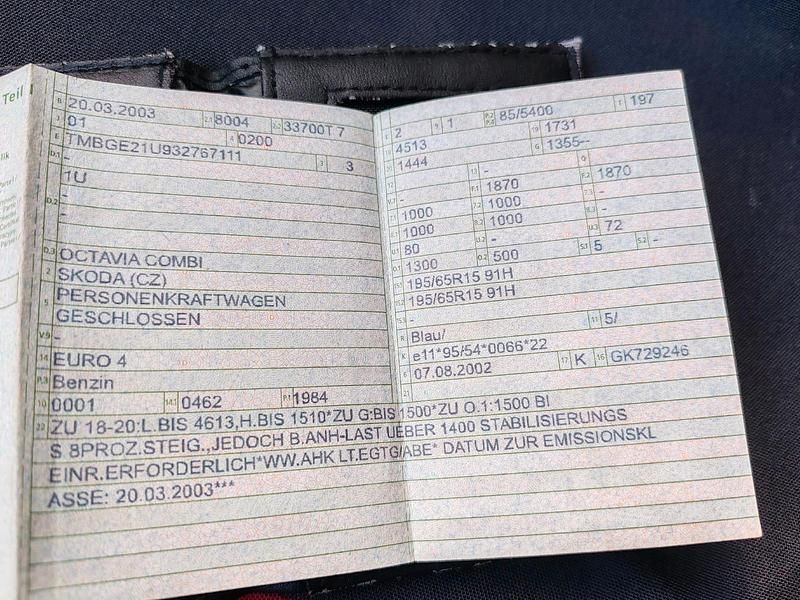 Teil I
B 20.03.2003 2.1 8004 2.2 33700T 7
J 01 4 0200
E TMBGE21U932767111 3 3
D.1 -
1U
D.2 -
-
D.3 OCTAVIA COMBI
2 SKODA (CZ)
5 PERSONENKRAFTWAGEN
GESCHLOSSEN
V.9 -
14 EURO 4
P.3 Benzin
10 0001 14.1 0462 P.1 1984
L 2 9 1 P.2 P.4 85/5400 T 197
18 4513 19 1731
20 1444 G 1355--
12 - 13 - Q
V.7 - F.1 1870 F.2 1870
7.1 1000 7.2 1000 7.3 -
8.1 1000 8.2 1000 8.3 -
U.1 80 U.2 - U.3 72
O.1 1300 O.2 500 S.1 5 S.2 -
15.1 195/65R15 91H
15.2 195/65R15 91H
15.3 -
R Blau/ 11 5/
K e11*95/54*0066*22
6 07.08.2002 17 K 16 GK729246
21
22 ZU 18-20:L.BIS 4613,H.BIS 1510*ZU G:BIS 1500*ZU O.1:1500 BI
S 8PROZ.STEIG.,JEDOCH B.ANH-LAST UEBER 1400 STABILISIERUNGS
EINR.ERFORDERLICH*WW.AHK LT.EGTG/ABE* DATUM ZUR EMISSIONSKL
ASSE: 20.03.2003***